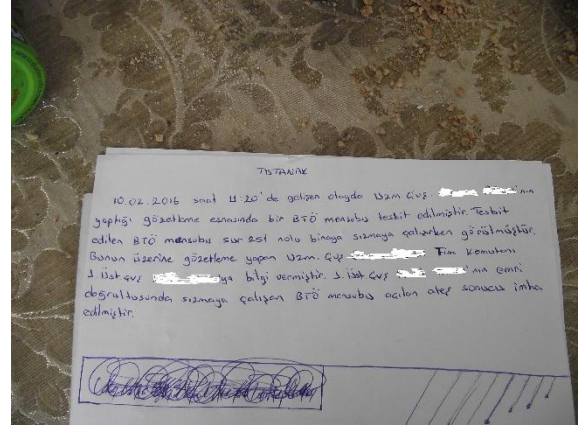 TUTANAK
10.02.2016 saat 11:20'de gelişen olayda Uzm. Çvş. 'nın
yaptığı gözetleme esnasında bir BTÖ mensubu tesbit edilmiştir. Tesbit
edilen BTÖ mensubu sur 251 nolu binaya sızmaya çalışırken görülmüştür.
Bunun üzerine gözetleme yapan Uzm. Çvş Tim Komutanı
J. Üst. Çvş 'ya bilgi vermiştir. J. Üst Çvş 'nın emri
doğrultusunda sızmaya çalışan BTÖ mensubu açılan ateş sonucu imha
edilmiştir.